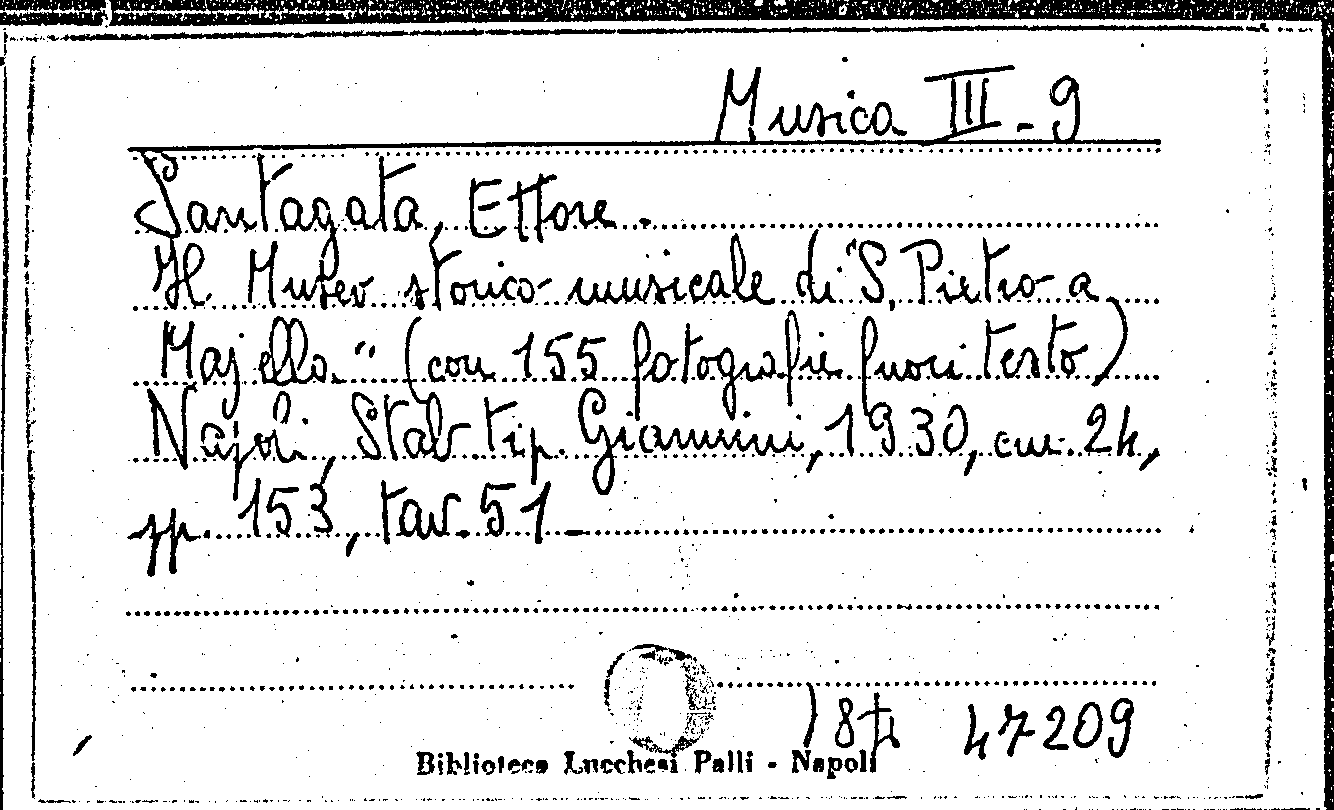 Musica III - 9
Santagata, Ettore.
Il Museo storico musicale di "S. Pietro a
Majella" (con 155 fotografie fuori testo)
Napoli, Stab tip. Giannini, 1930, cm. 24,
pp. 153, tav. 51 -
47209
Biblioteca Lucchesi Palli - Napoli